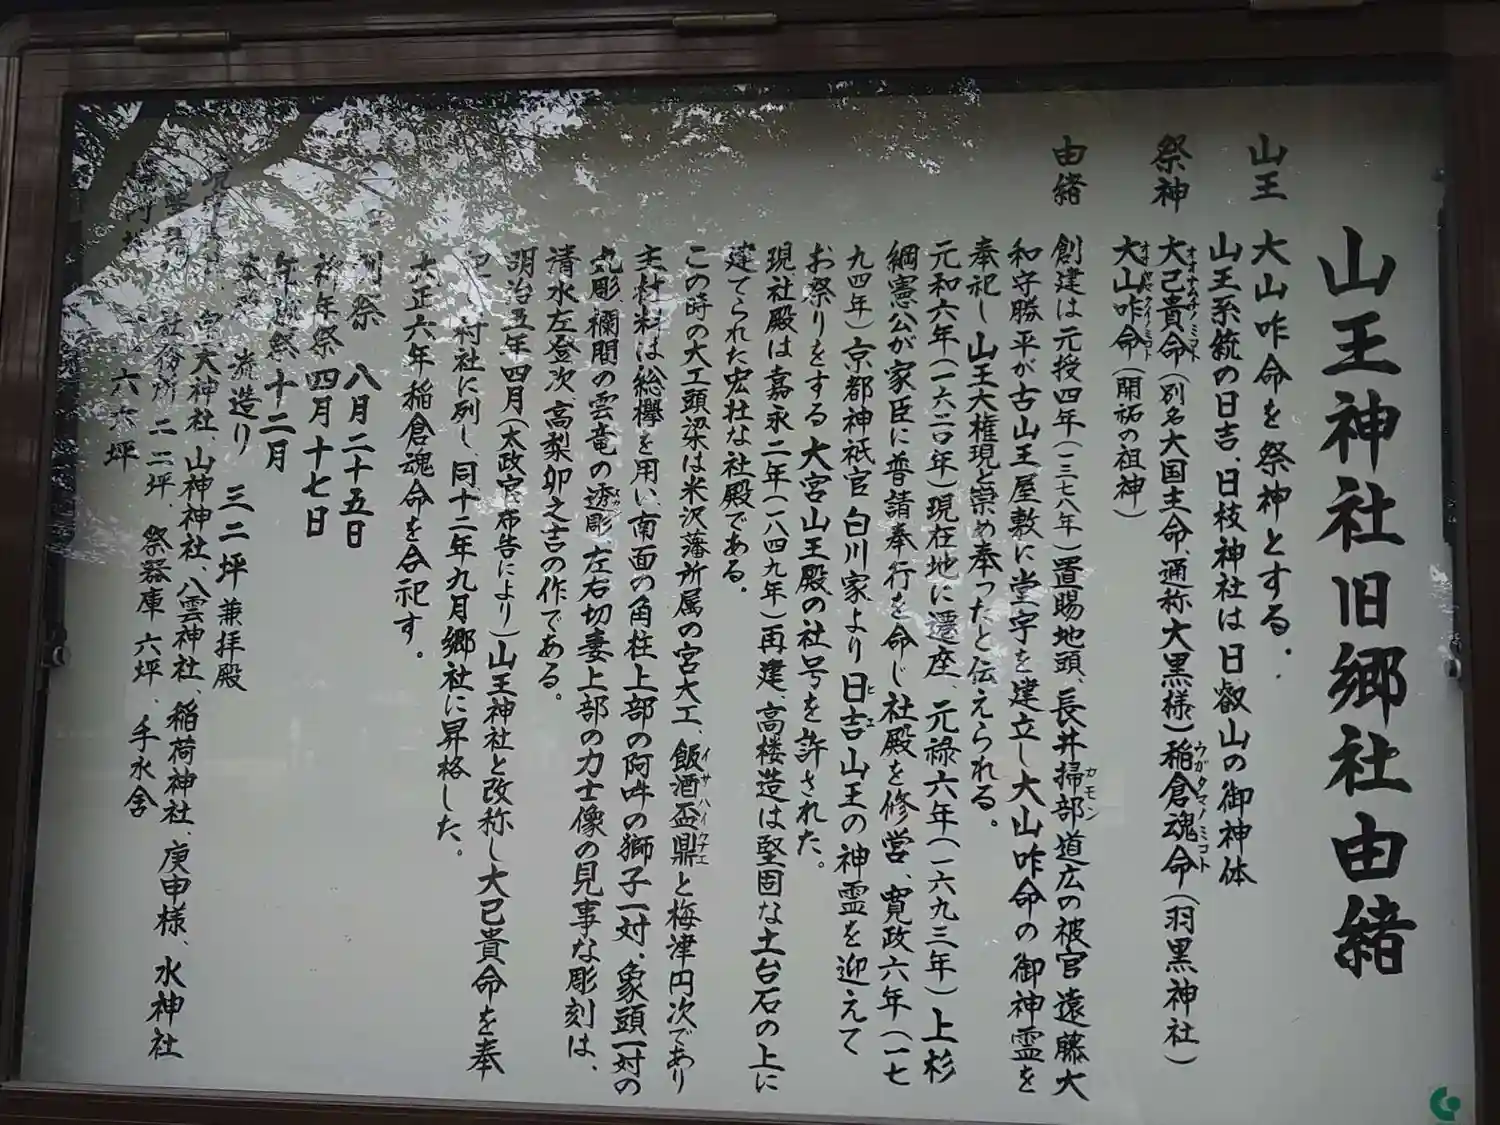 山王神社旧郷社由緒
山王 大山咋命を祭神とする。
山王系統の日吉、日枝神社は日叡山の御神体
祭神 大己貴命(別名大国主命、通称大黒様)稲倉魂命(羽黒神社)
大山咋命(開拓の祖神)
由緒 創建は元授四年(一三七八年)置賜地頭、長井掃部道広の被官遠藤大
和守勝平が古山王屋敷に堂宇を建立し大山咋命の御神霊を
奉祀し山王大権現と崇め奉ったと伝えられる。
元和六年(一六二〇年)現在地に遷座、元禄六年(一六九三年)上杉
綱憲公が家臣に普請奉行を命じ社殿を修営、寛政六年(一七
九四年)京都神祇官白川家より日吉山王の神霊を迎えて
お祭りをする大宮山王殿の社号を許された。
現社殿は嘉永二年(一八四九年)再建、高楼造は堅固な土台石の上に
建てられた宏壮な社殿である。
この時の大工頭梁は米沢藩所属の宮大工、飯酒盃鼎と梅津円次であり
主材料は総欅を用い、南面の角柱上部の阿吽の獅子一対、象頭一対の
丸彫、欄間の雲竜の透彫、左右切妻上部の力士像の見事な彫刻は、
清水左登次、高梨卯之吉の作である。
明治五年四月(太政官布告により)山王神社と改称し大己貴命を奉
村社に列し、同十二年九月郷社に昇格した。
大正六年稲倉魂命を合祀す。
例祭 八月二十五日
祈年祭 四月十七日
祭 十二月
流造り 三二坪 兼拝殿
神社、山神神社、八雲神社、稲荷神社、庚申様、水神社
社務所 二二坪、祭器庫 六坪、手水舎
六六坪